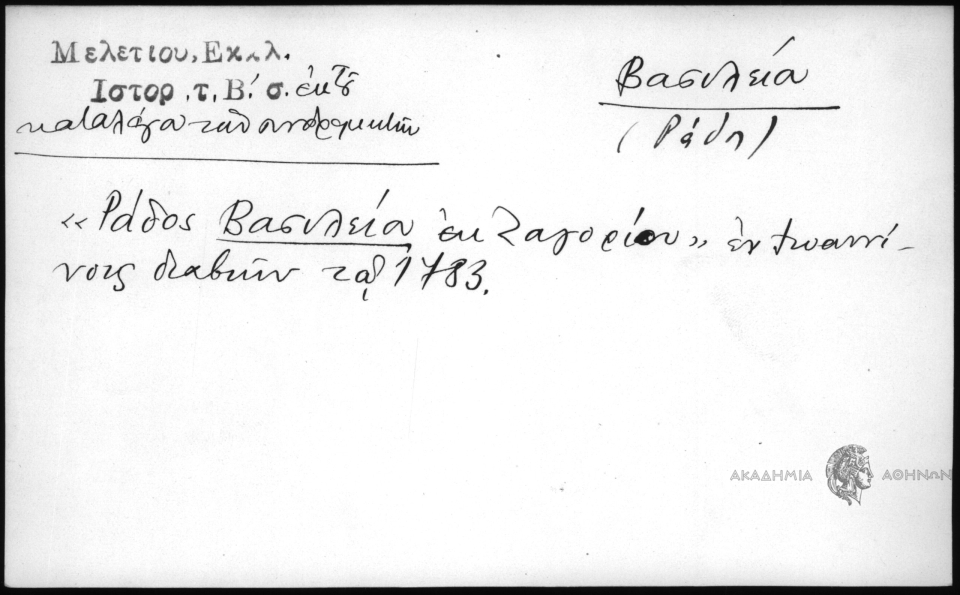 Μελετιου, Εκκλ.
Ιστορ. τ, Β΄. σ. ἐκ τοῦ
καταλόγου τῶν συνδρομητῶν
Βασιλεία
(Ράδη)
«Ράδος Βασιλεία ἐκ Ζαγορίου» ἐν Ἰωαννί-
νοις διαβιῶν τῷ 1783.
ΑΚΑΔΗΜΙΑ ΑΘΗΝΩΝ